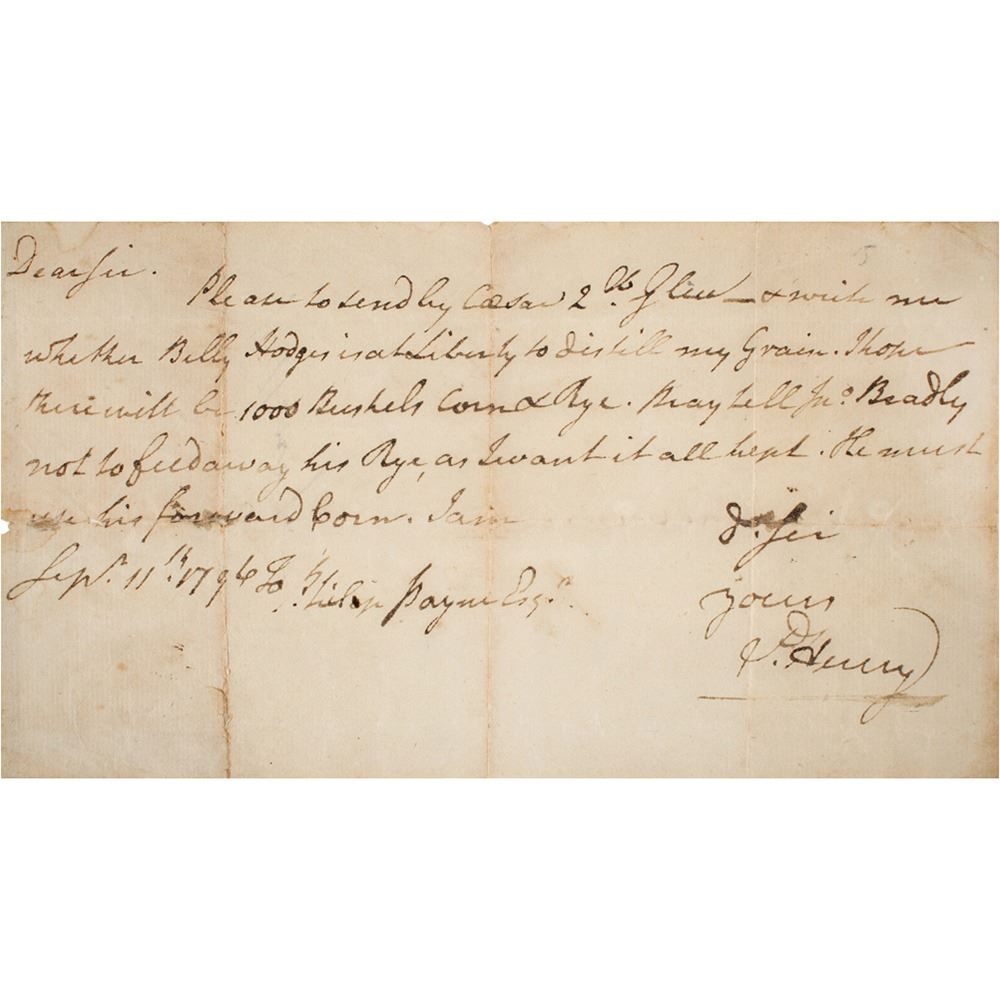 Dear Sir.
Please to send by Cæsar 2 lb Glue — & write me
whether Billy Hodges is at Liberty to distill my Grain. I hope
there will be 1000 Bushels Corn & Rye. Pray tell Jno. Bradly
not to feed away his Rye, as I want it all kept. He must
use his forward Corn. I am
d. Sir
Sepr. 11th. 1796 To Philip Payne Esqr.
yours
P. Henry